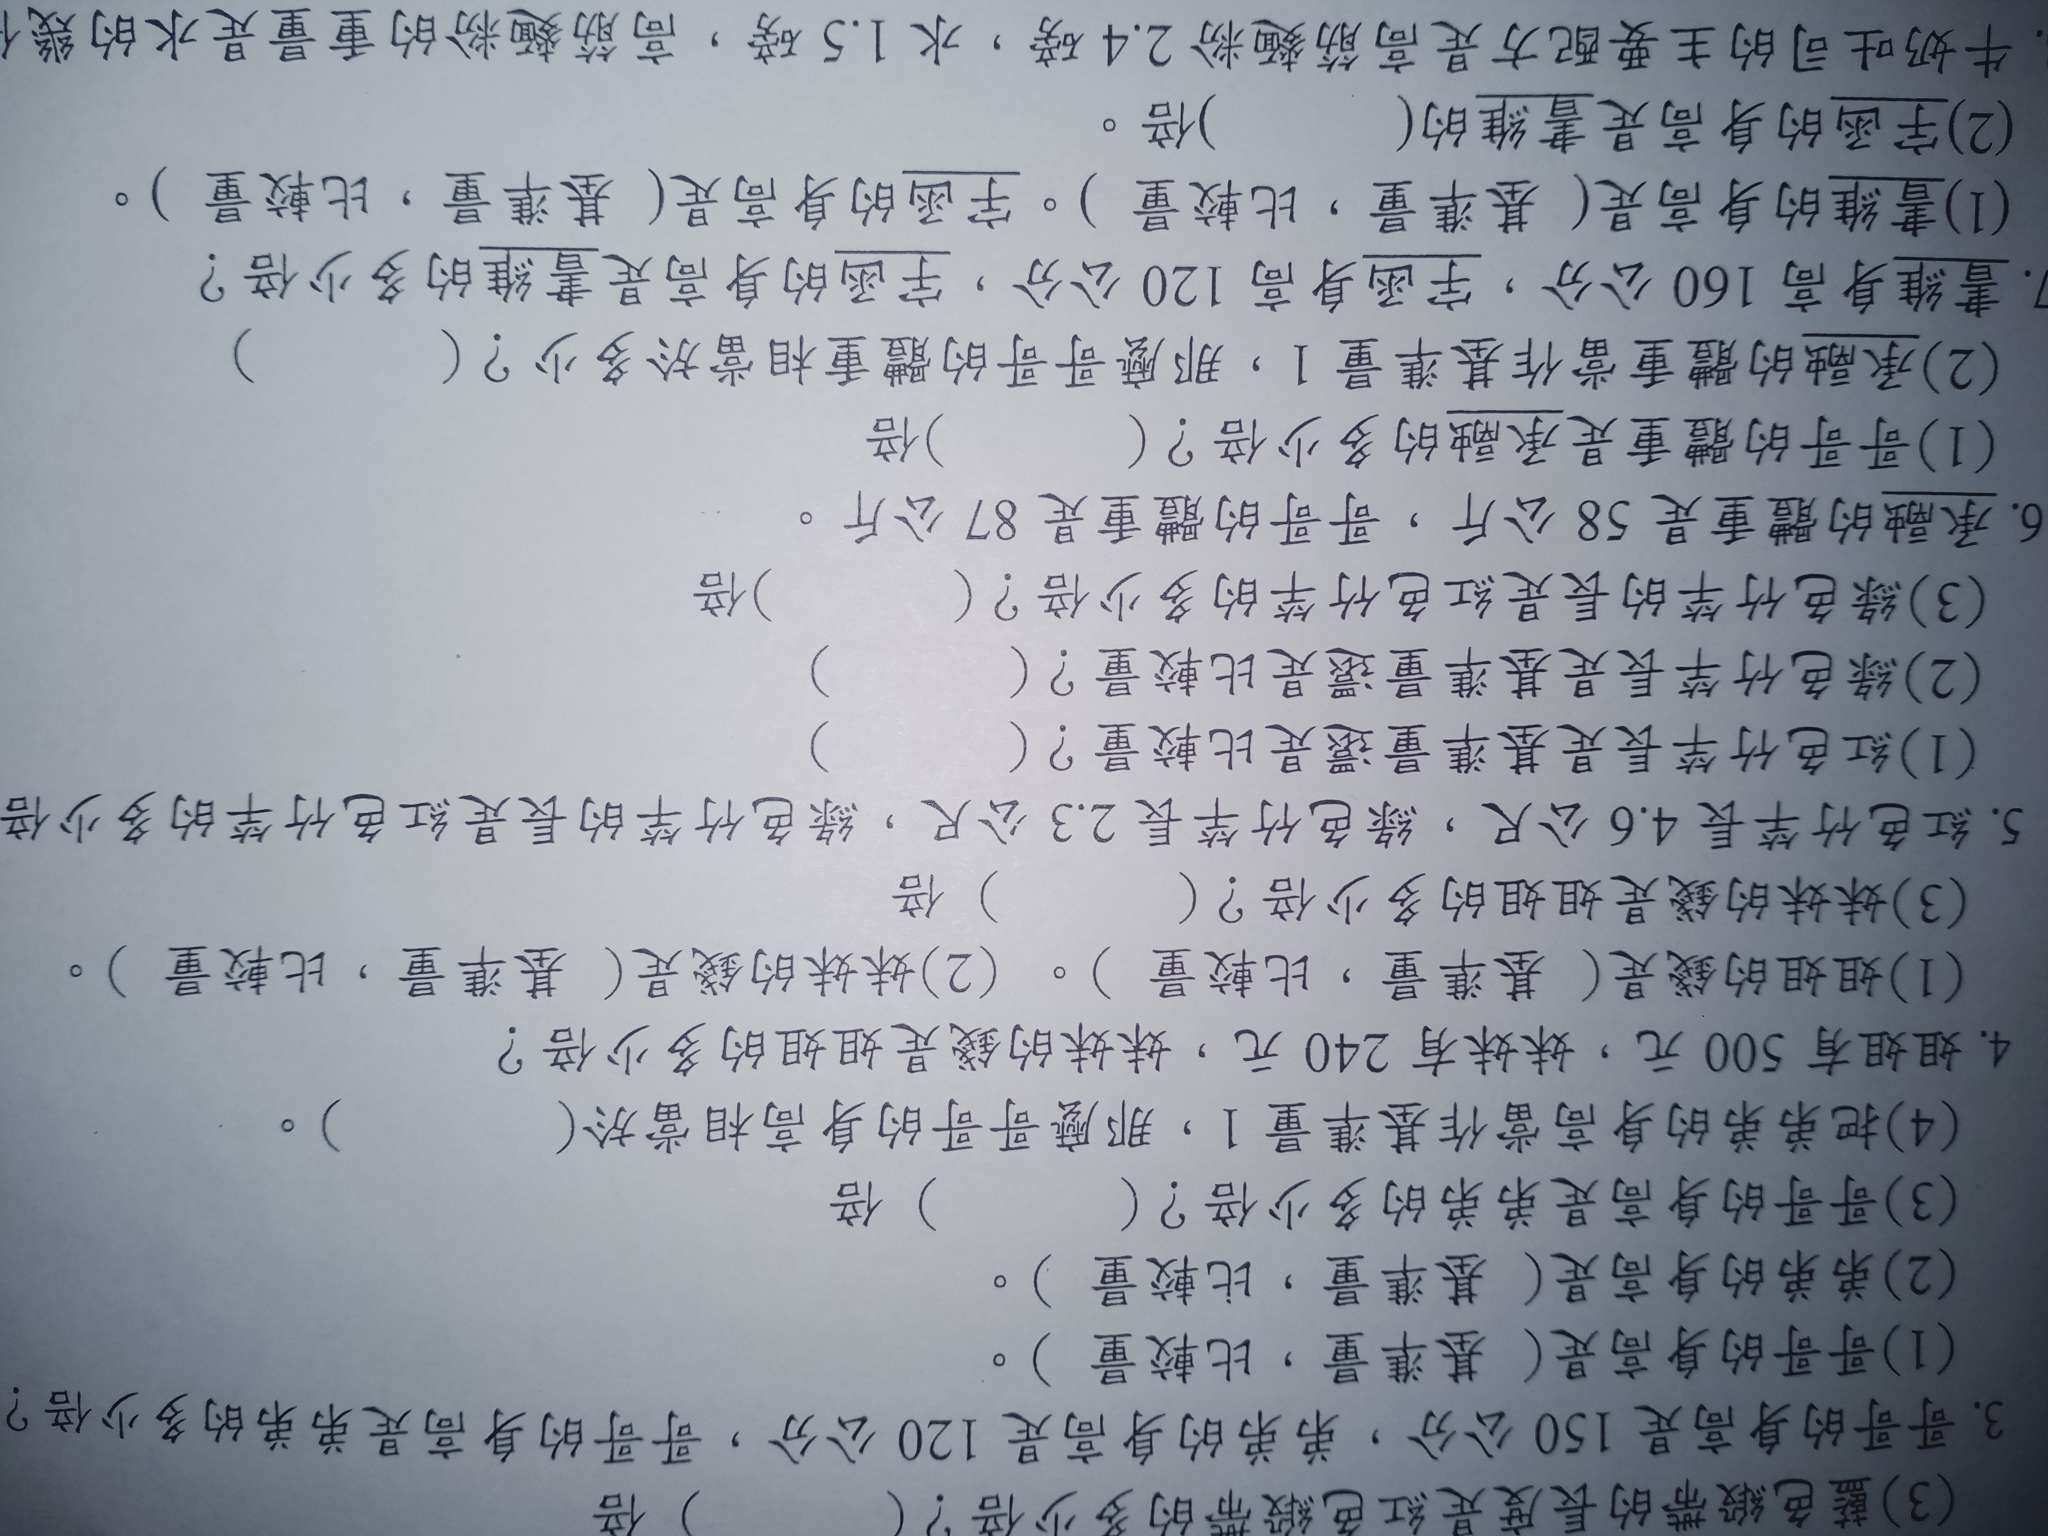 (3)藍色緞帶的長度是紅色緞帶的多少倍？(　　　)倍
3. 哥哥的身高是 150 公分，弟弟的身高是 120 公分，哥哥的身高是弟弟的多少倍？
(1)哥哥的身高是( 基準量，比較量 )。
(2)弟弟的身高是( 基準量，比較量 )。
(3)哥哥的身高是弟弟的多少倍？(　　　) 倍
(4)把弟弟的身高當作基準量 1，那麼哥哥的身高相當於(　　　)。
4. 姐姐有 500 元，妹妹有 240 元，妹妹的錢是姐姐的多少倍？
(1)姐姐的錢是( 基準量，比較量 )。 (2)妹妹的錢是( 基準量，比較量 )。
(3)妹妹的錢是姐姐的多少倍？(　　　) 倍
5. 紅色竹竿長 4.6 公尺，綠色竹竿長 2.3 公尺，綠色竹竿的長是紅色竹竿的多少倍
(1)紅色竹竿長是基準量還是比較量？(　　　)
(2)綠色竹竿長是基準量還是比較量？(　　　)
(3)綠色竹竿的長是紅色竹竿的多少倍？(　　　)倍
6. 承融的體重是 58 公斤，哥哥的體重是 87 公斤。
(1)哥哥的體重是承融的多少倍？(　　　)倍
(2)承融的體重當作基準量 1，那麼哥哥的體重相當於多少？(　　　)
7. 書維身高 160 公分，宇函身高 120 公分，宇函的身高是書維的多少倍？
(1)書維的身高是( 基準量，比較量 )。宇函的身高是( 基準量，比較量 )。
(2)宇函的身高是書維的(　　　)倍。
. 牛奶吐司的主要配方是高筋麵粉 2.4 磅，水 1.5 磅，高筋麵粉的重量是水的幾